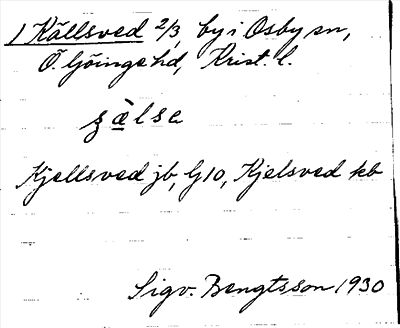 1 Källsved 2/3, by i Osby sn,
Ö. Göinge hd, Krist. l.
sälse
Kjellsved jb, G10, Kjelsved kb
Sigv. Bengtsson 1930